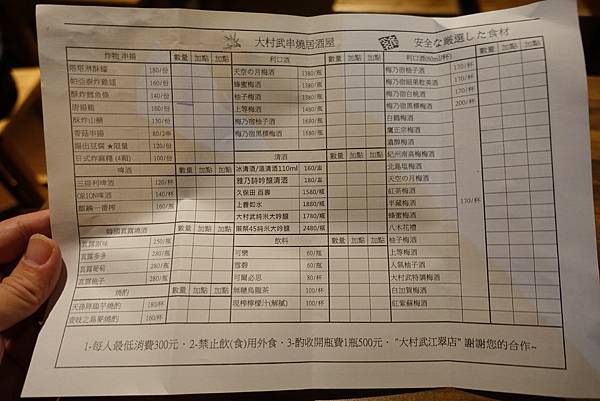 大村武串燒居酒屋
安全な厳選した食材
炸物 串揚 數量 加點 加點
塔塔淋酥雞 180/份
帕亞泰炸雞翅 160/份
酥炸鱈魚條 140/份
唐揚雞 180/份
酥炸山藥 130/份
香菇串揚 80/2串
揚出豆腐 ★限量 120/份
日式炸麻糬 (4顆) 100/份
啤酒 數量 加點 加點
三得利啤酒 120/杯
ORION啤酒 140/杯
麒麟一番搾 160/瓶
韓國真露燒酒 數量 加點 加點
真露原味 250/瓶
真露多多 280/瓶
真露葡萄 280/瓶
真露桃子 280/瓶
燒酌 數量 加點 加點
天孫降臨芋燒酌 180/杯
壹岐之島麥燒酌 160/杯
利口酒 數量 加點 加點
天空の月梅酒 1380/瓶
蜂蜜梅酒 1380/瓶
柚子梅酒 1380/瓶
上等梅酒 1480/瓶
梅乃宿柚子酒 1680/瓶
梅乃宿黑標梅酒 1680/瓶
清酒 數量 加點 加點
冰清酒/溫清酒110ml 160/壺
雅乃詩吟釀清酒 180/壺
久保田 百壽 1580/瓶
上善如水 1880/瓶
大村武純米大吟釀 1780/瓶
賑祭45純米大吟釀 2480/瓶
飲料 數量 加點 加點
可樂 60/瓶
雪碧 60/瓶
可爾必思 80/杯
無糖烏龍茶 100/杯
現榨檸檬汁(解膩) 100/杯
利口酒(60ml/杯) 數量 加點 加點
梅乃宿柚子酒 170/杯
梅乃宿蘋果乾美酒 170/杯
梅乃宿白桃酒 170/杯
梅乃宿黑標梅酒 200/杯
白鶴梅酒
鷹正宗梅酒
濃醇梅酒
紀州南高梅梅酒
北島塩梅酒
天空の月梅酒
紅茶梅酒
半藏梅酒 170/杯
蜂蜜梅酒
八木花禮
柚子梅酒
上等梅酒
人氣柚子酒
大村武特調梅酒
白加賀梅酒
紅紫蘇梅酒
1-每人最低消費300元．2-禁止飲(食)用外食．3-酌收開瓶費1瓶500元． "大村武江翠店" 謝謝您的合作~